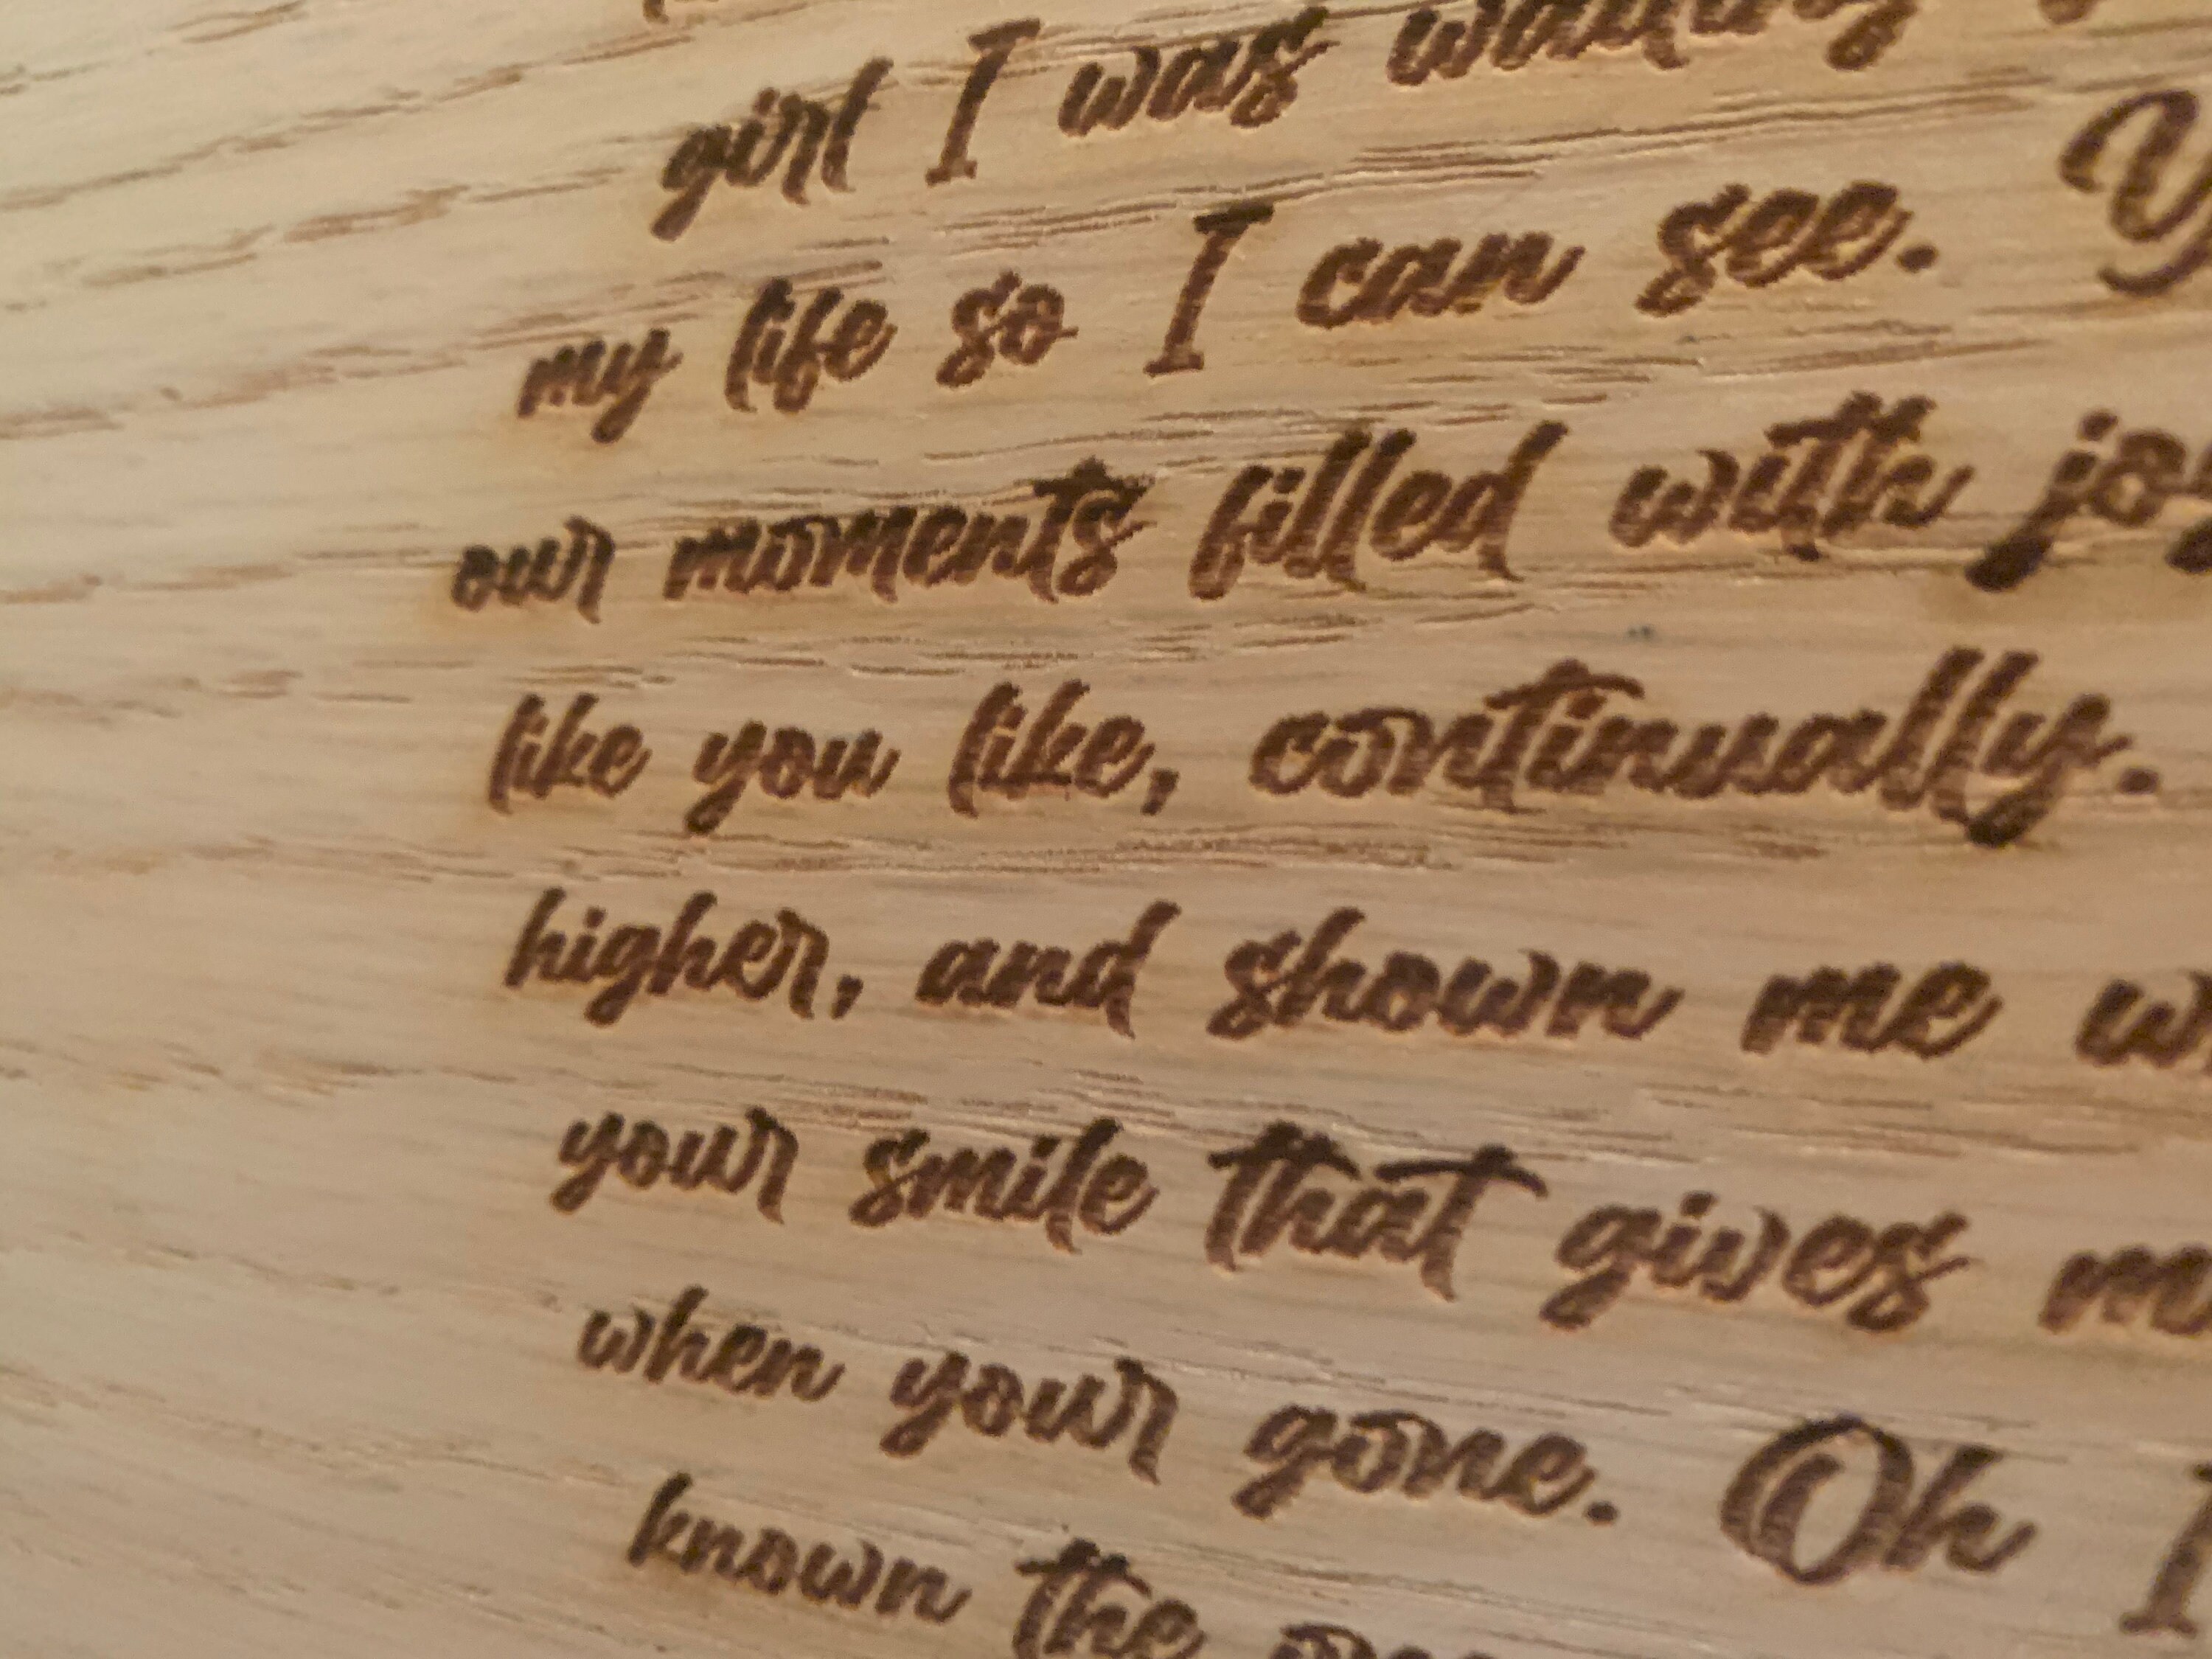 girl I was waiting
my life so I can see.
our moments filled with
like you like, continually.
higher, and shown me
your smile that gives
when your gone. Oh I
known the